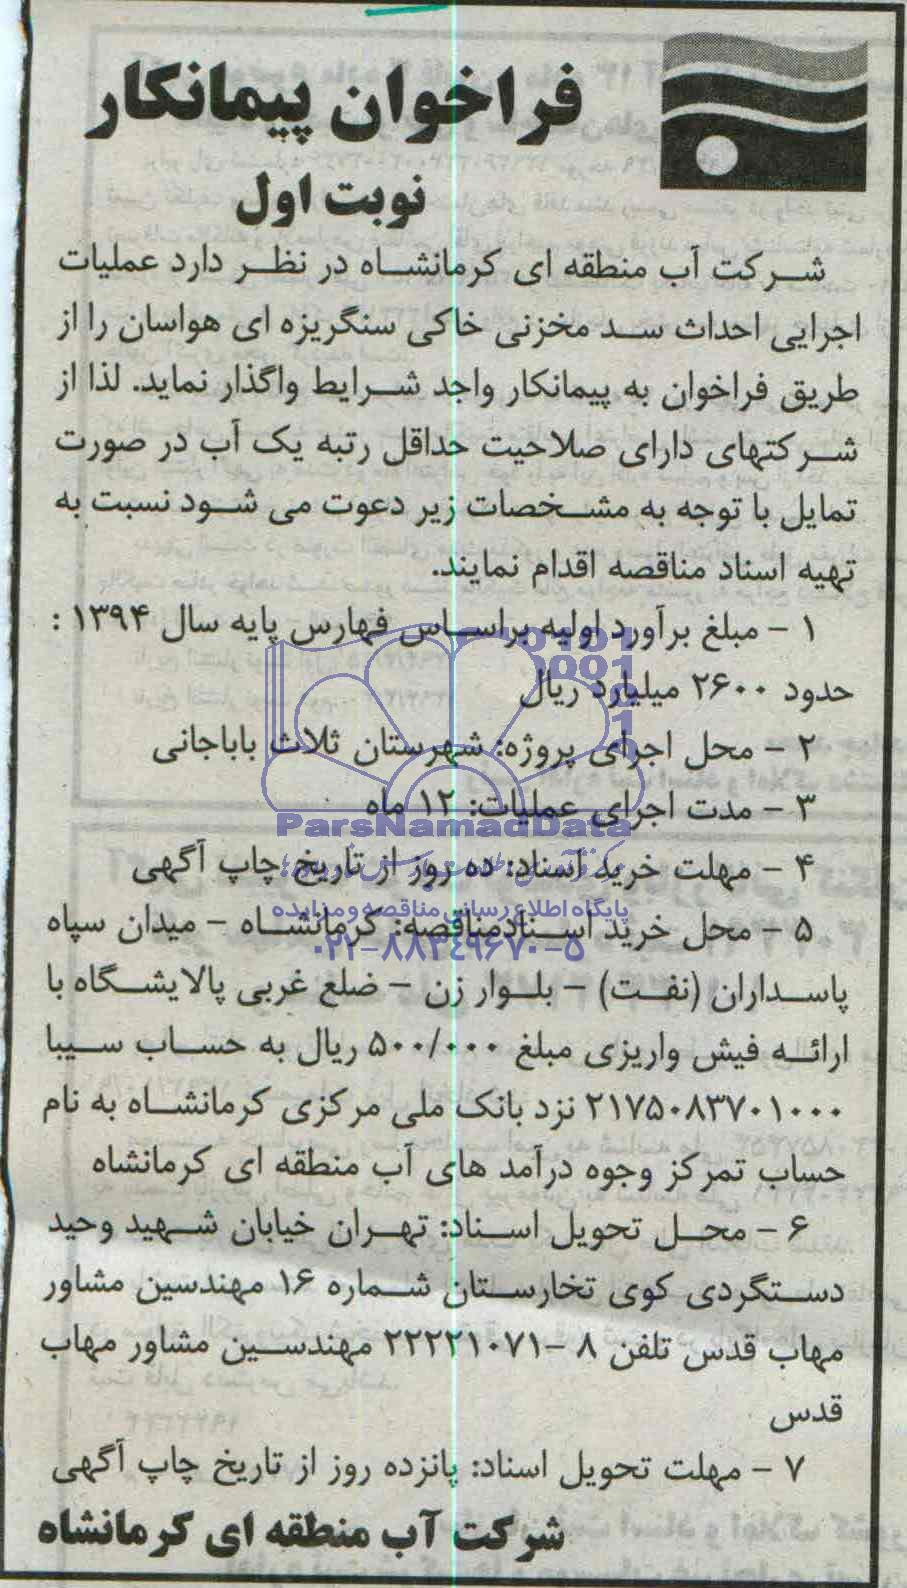 فراخوان پیمانکار
نوبت اول
شرکت آب منطقه ای کرمانشاه در نظر دارد عملیات
اجرایی احداث سد مخزنی خاکی سنگریزه ای هواسان را از
طریق فراخوان به پیمانکار واجد شرایط واگذار نماید. لذا از
شرکتهای دارای صلاحیت حداقل رتبه یک آب در صورت
تمایل با توجه به مشخصات زیر دعوت می شود نسبت به
تهیه اسناد مناقصه اقدام نمایند.
۱ - مبلغ برآورد اولیه براساس فهارس پایه سال ۱۳۹۴ :
حدود ۲۶۰۰ میلیارد ریال
۲ - محل اجرای پروژه: شهرستان ثلاث باباجانی
۳ - مدت اجرای عملیات: ۱۲ ماه
ParsNamadData
۴ - مهلت خرید اسناد: ده روز از تاریخ چاپ آگهی
پایگاه اطلاع رسانی مناقصه و مزایده
۵ - محل خرید اسنادمناقصه: کرمانشاه - میدان سپاه
۰۲۱-۸۸۳۴۹۶۷۰-۵
پاسداران (نفت) - بلوار زن - ضلع غربی پالایشگاه با
ارائه فیش واریزی مبلغ ۵۰۰/۰۰۰ ریال به حساب سیبا
۲۱۷۵۰۸۳۷۰۱۰۰۰ نزد بانک ملی مرکزی کرمانشاه به نام
حساب تمرکز وجوه درآمد های آب منطقه ای کرمانشاه
۶ - محل تحویل اسناد: تهران خیابان شهید وحید
دستگردی کوی تخارستان شماره ۱۶ مهندسین مشاور
مهاب قدس تلفن ۸ -۲۲۲۲۱۰۷۱ مهندسین مشاور مهاب
قدس
۷ - مهلت تحویل اسناد: پانزده روز از تاریخ چاپ آگهی
شرکت آب منطقه ای کرمانشاه